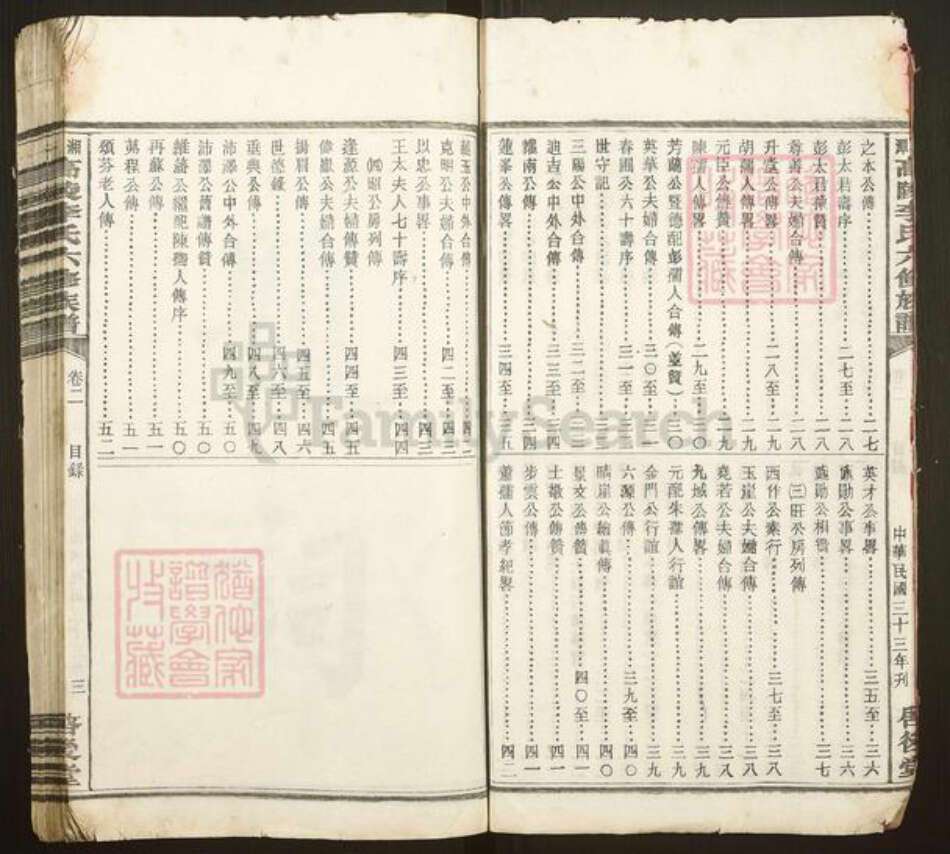 之本公傳 二七
彭太君壽序 二七至二八
彭太君像贊 二八
尊善公夫婦合傳 二八
升虛公傳畧 二八至二九
胡孺人傳畧 二九
元臣公像贊 二九
陳孺人傳畧 二九至三〇
芳蘭公暨德配彭孺人合傳（並贊） 三〇
英華公夫婦合傳 三〇至三一
春圃公六十壽序 三一至三二
世守記
三陽公中外合傳 三二至三三
迪吉公中外合傳 三三至三四
南公傳 三四
蓮峯公傳畧 三四至三五
英才公事畧 三五至三六
勛公事畧 三六
勛公相贊 三七
㈢旺公房列傳
西作公素行 三七至三八
玉崖公夫婦合傳 三八
堯若公夫婦合傳 三八
九域公傳畧 三九
元配朱孺人行誼 三九
金門公行誼 三九
六源公傳 三九至四〇
晴崖公繪眞傳 四〇
景文公像贊 四〇至四一
士公像贊 四一
步雲公傳 四一
蕭孺人節孝紀畧 四二
中華民國三十三年刊
玉公中外合傳
克明公夫婦合傳 四二至四三
以忠公事畧 四三
王太夫人七十壽序 四三至四四
㈣昭公房列傳
逢源公夫婦傳贊 四四至四五
偉公夫婦合傳 四五
揖眉公傳 四五至四六
世德錄 四六至四八
垂典公傳 四八至四九
沛澤公中外合傳 四九至五〇
沛澤公舊譜傳 五〇
維藩公繼配陳孺人傳序 五〇
再蘇公傳 五一
萬程公傳 五一
頌芬老人傳 五二
高陵李氏六修族譜
卷二
目錄
三
啓後堂